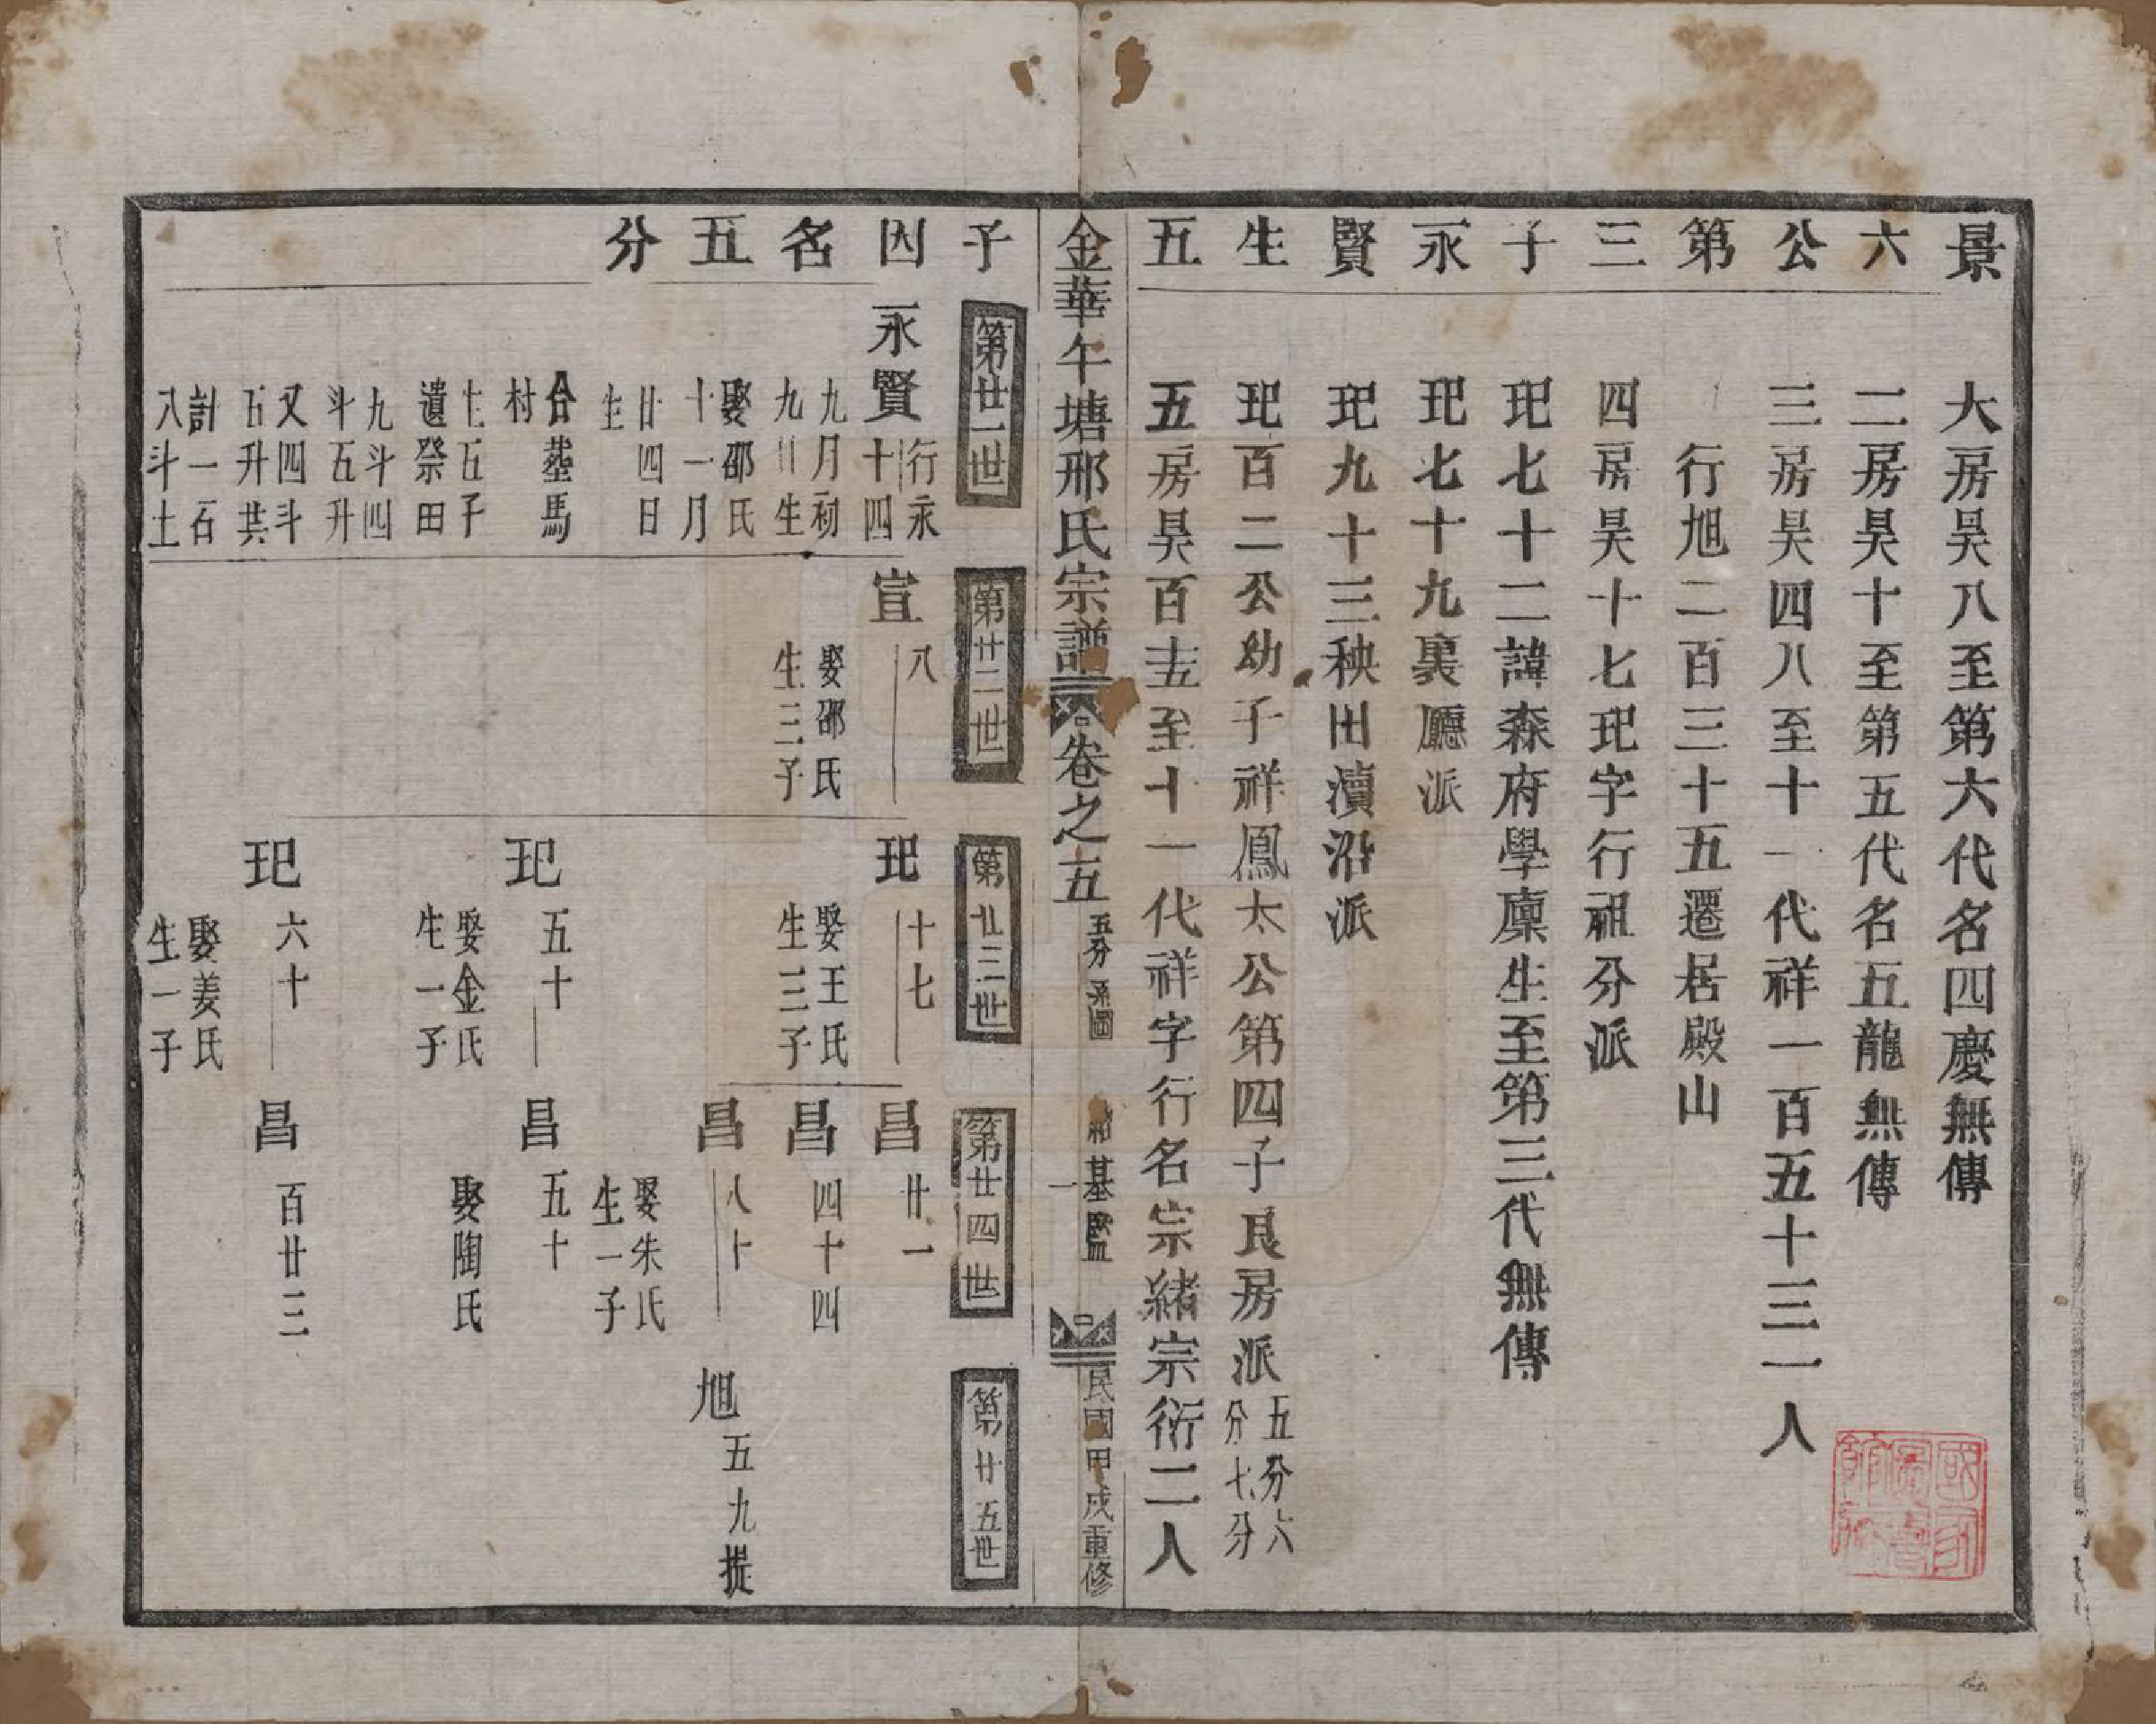 景六公第三子永賢生五
大房昊八至第六代名四慶無傳
二房昊十至第五代名五龍無傳
三房昊四八至十一代祥一百五十三一人
行旭二百三十五遷居殿山
四房昊十七玘字行祖分派
玘七十二諱森府學廩生至第三代無傳
玘七十九裏廳派
玘九十三秧田瀆沿派
玘百二公幼子祥鳳太公第四子良房派
五分六
分七分
五房昊百十五至十一代祥字行名宗緒宗衍二人
金華午塘邢氏宗譜
卷之五
五分系圖
基
一
民國甲戌重修
子因名五分
第廿一世
第廿二世
第廿三世
第廿四世
第廿五世
永賢
行永
十四
九月初
九日生
娶邵氏
十一月
廿四日
生
合葬馬
村
七五子
遺祭田
九斗四
斗五升
又四斗
五升共
計一石
八斗土
宣
八
娶邵氏
生三子
玘
十七
娶王氏
生三子
玘
五十
娶金氏
生一子
玘
六十
娶姜氏
生一子
昌
廿一
昌
四十四
昌
八十
娶朱氏
生一子
昌
五十
娶陶氏
昌
百廿三
旭
五九提